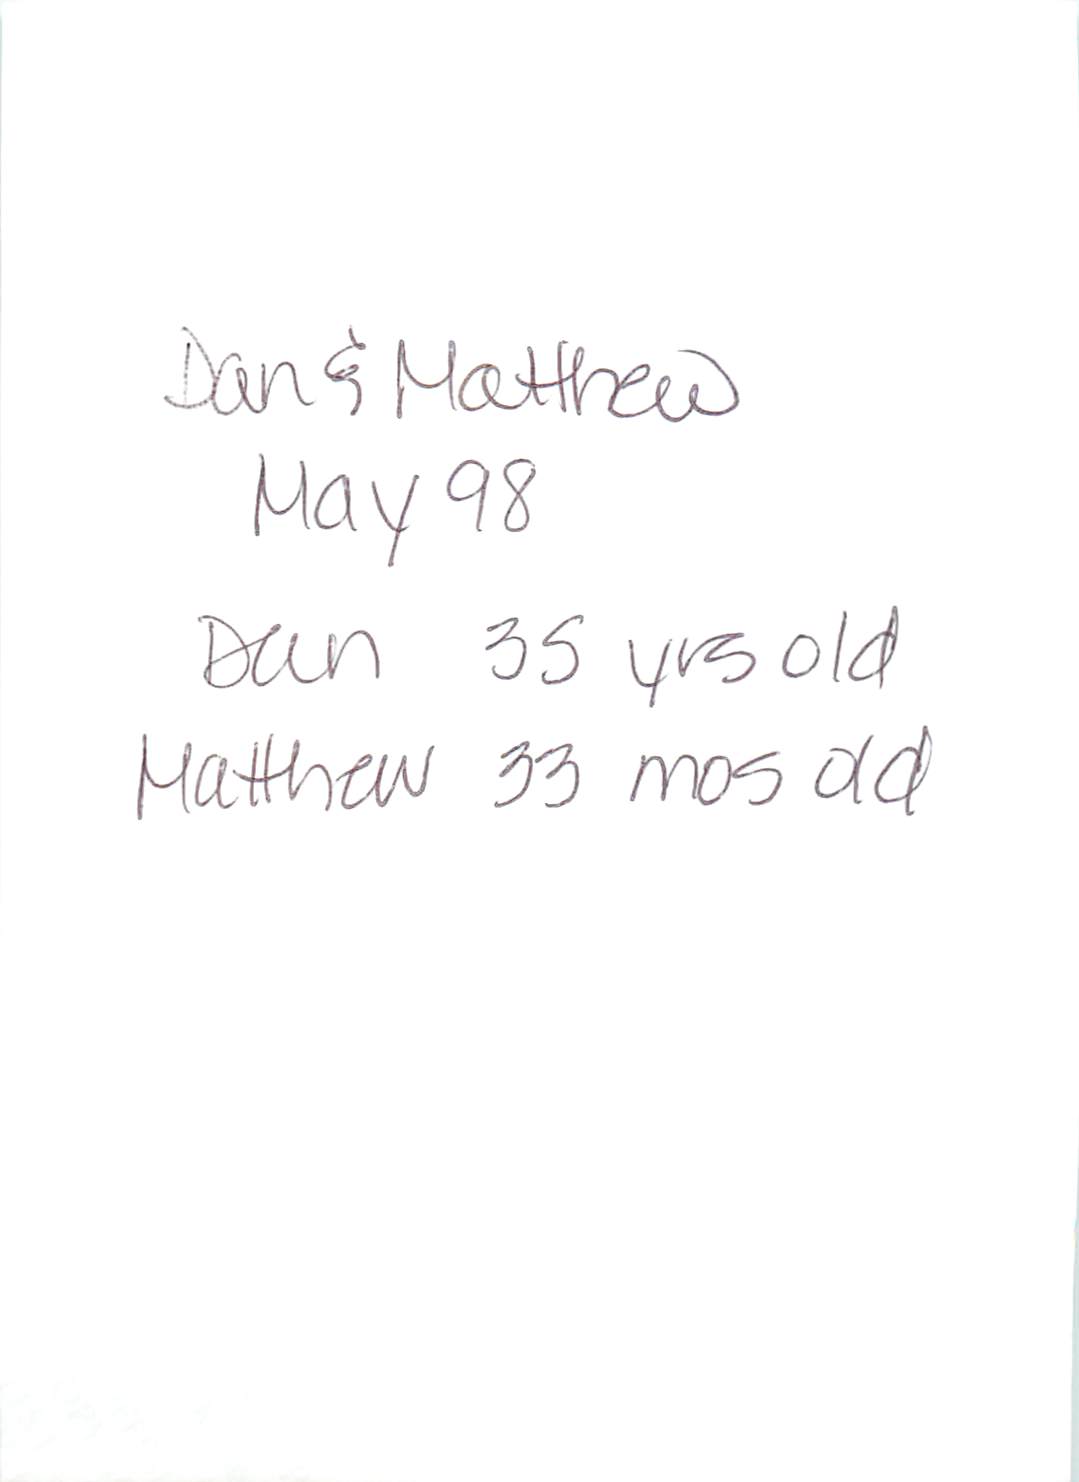 Dan & Matthew
May 98
Dan 35 yrs old
Matthew 33 mos old